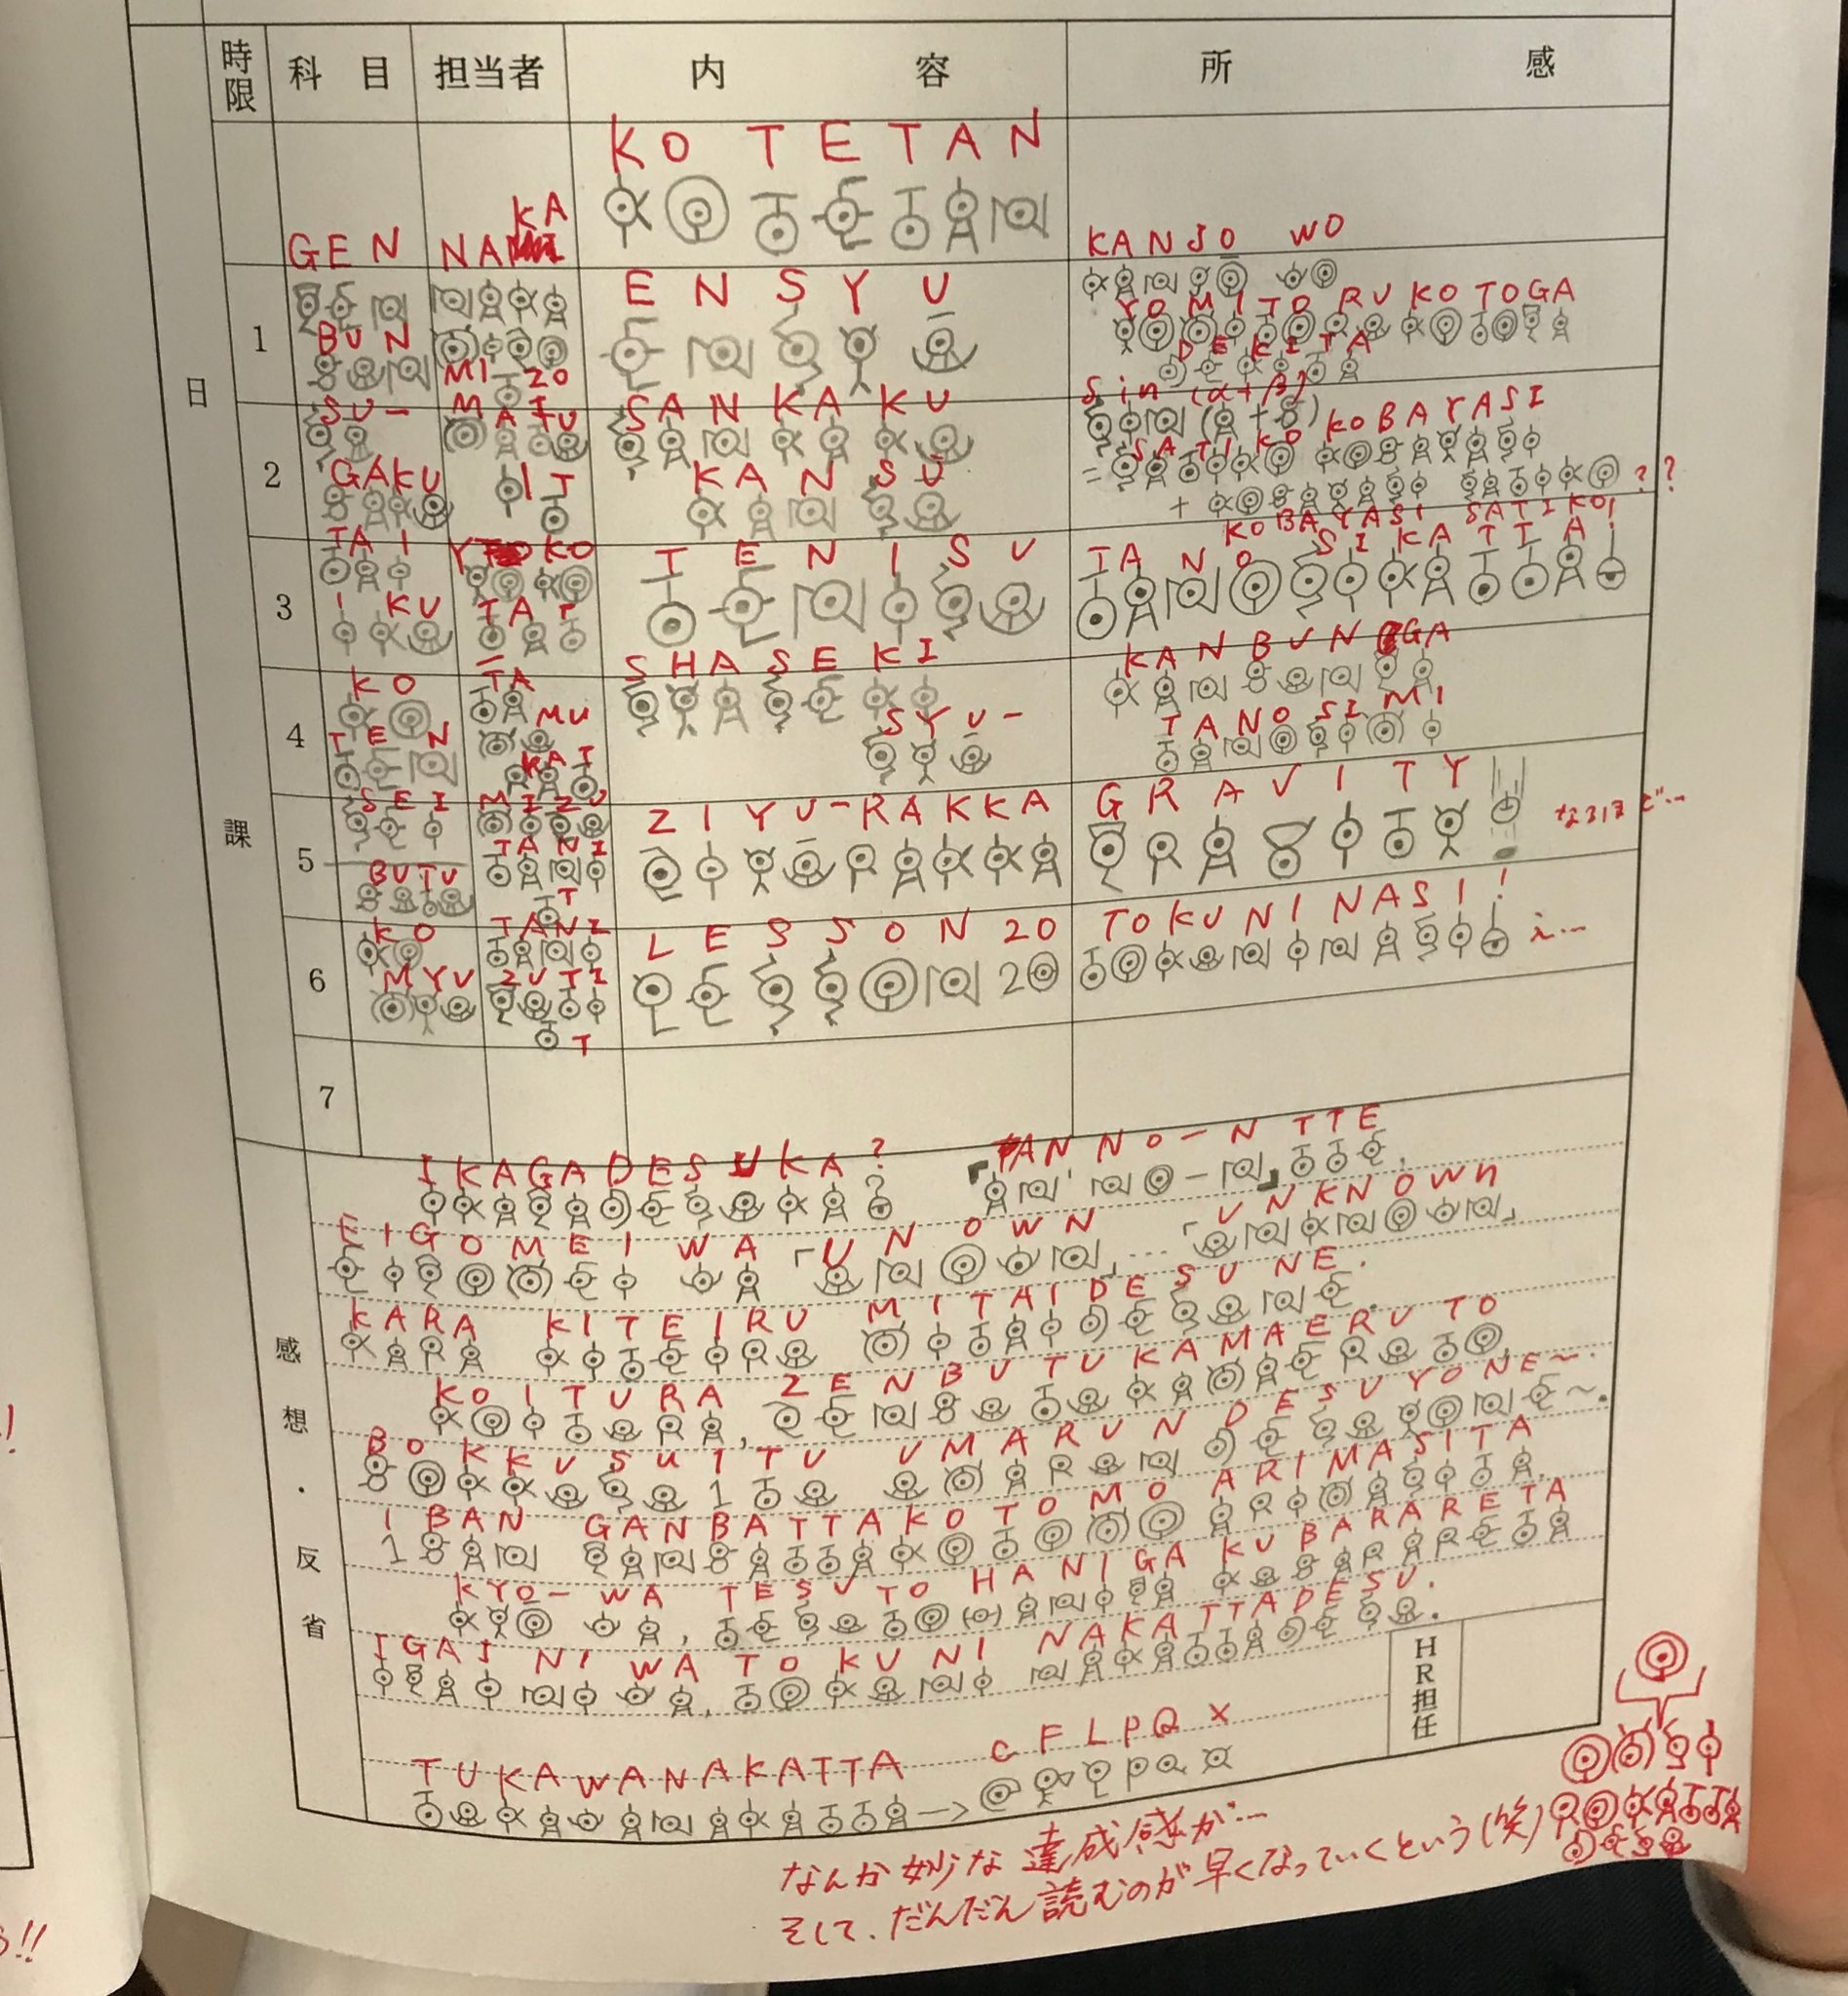 時限 科目 担当者 内容 所感
日課
KO TETAN
GEN
BUN
NAKA
MI ZO
1
ENSYŪ
KANSŌ WO
YOMITORU KOTOGA
DEKITA
SU-
GAKU
MATU
I T
2
SANKAKU
KANSŪ
Sin (α+β)
= SATIKO KOBAYASI
+ KOBAYASI SATIKO ??
TAI
IKU
YOKO
TA T
3
TENISU
TANOSIKATTA!
KO
TEN
TA
MU
RA T
4
SHASEKI
SYU-
KANBUN GA
TANOSIMI
SEI
BUTU
MIZU
TANI
T
5
ZIYU-RAKKA
GRAVITY
なるほど…
KO
MYU
TANI
GUTI
T
6
LESSON 20
TOKUNINASI!
え…
7
感想・反省
IKAGADESUKA? 「AN'NO-N」TTE
EIGOMEI WA 「UNOWN」…「UNKNOWN」
KARA KITEIRU MITAIDESUNE.
KOITURA, ZENBU TUKAMAERU TO
BOKKUSU 1TU UMARUNDESUYONE~.
1BAN GANBATTAKOTOMO ARIMASITA
KYO- WA, TESUTO HANIGA KUBARARETA
IGAI NI WA, TOKUNI NAKATTADESU.
TUKAWANAKATTA → C F L P Q X
HR担任
なんか妙な達成感が…
そして、だんだん読むのが早くなっていくという(笑)